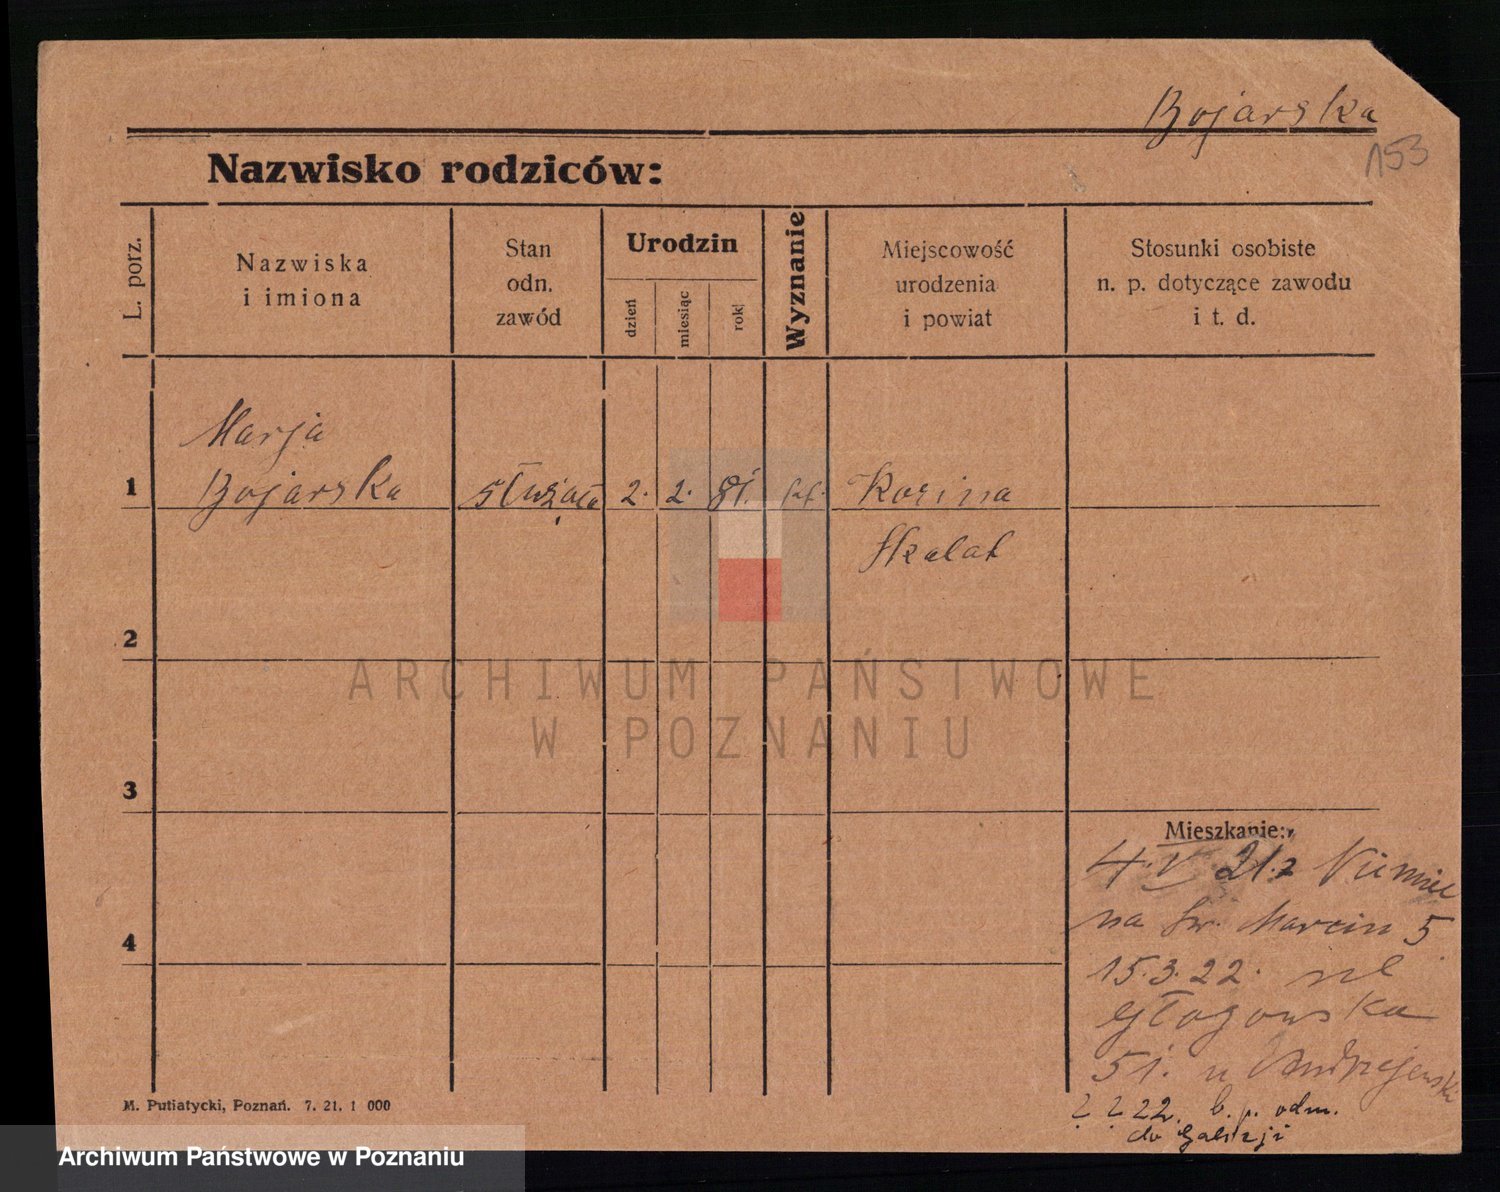 Bojarska
153
Nazwisko rodziców:
L. porz.
Nazwiska
i imiona
Stan
odn.
zawód
Urodzin
dzień
miesiąc
rok
Wyznanie
Miejscowość
urodzenia
i powiat
Stosunki osobiste
n. p. dotyczące zawodu
i t. d.
Marja
1 Bojarska służąca 2. 2. 81. kt. Kozina
Skalat
2
ARCHIWUM PAŃSTWOWE
W POZNANIU
3
Mieszkanie:
4 V 21 z Niemiec
na św. Marcin 5
4
15.3.22. ul
Głogowska
51. u Andrzejewski
? ? 22. b. p. odm.
do Galicji
M. Putiatycki, Poznań. 7. 21. 1 000
Archiwum Państwowe w Poznaniu